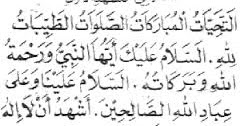 التَّحِيَّاتُ الْمُبَارَكَاتُ الصَّلَوَاتُ الطَّيِّبَاتُ
لِلّٰهِ. السَّلاَمُ عَلَيْكَ أَيُّهَا النَّبِيُّ وَرَحْمَةُ
اللهِ وَبَرَكَاتُه. السَّلاَمُ عَلَيْنَا وَعَلَى
عِبَادِ اللهِ الصَّالِحِيْنَ. أَشْهَدُ أَنْ لاَ إِلٰهَ